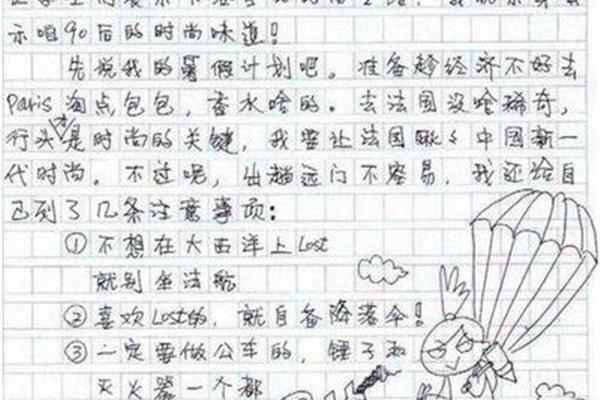 示咱90后的时尚味道!
先说我的暑假计划吧。准备趁经济不好去
Paris淘点包包,香水啥的。去法国没啥稀奇,
行头才是时尚的关键,我要让法国瞅瞅中国新一
代时尚。不过呢,出趟远门不容易,我还给自
己列了几条注意事项:
①不想在大西洋上Lost
就别坐法航
②喜欢Lost的,就自备降落伞!
③一定要做公车的,锤子和
灭火器一个都